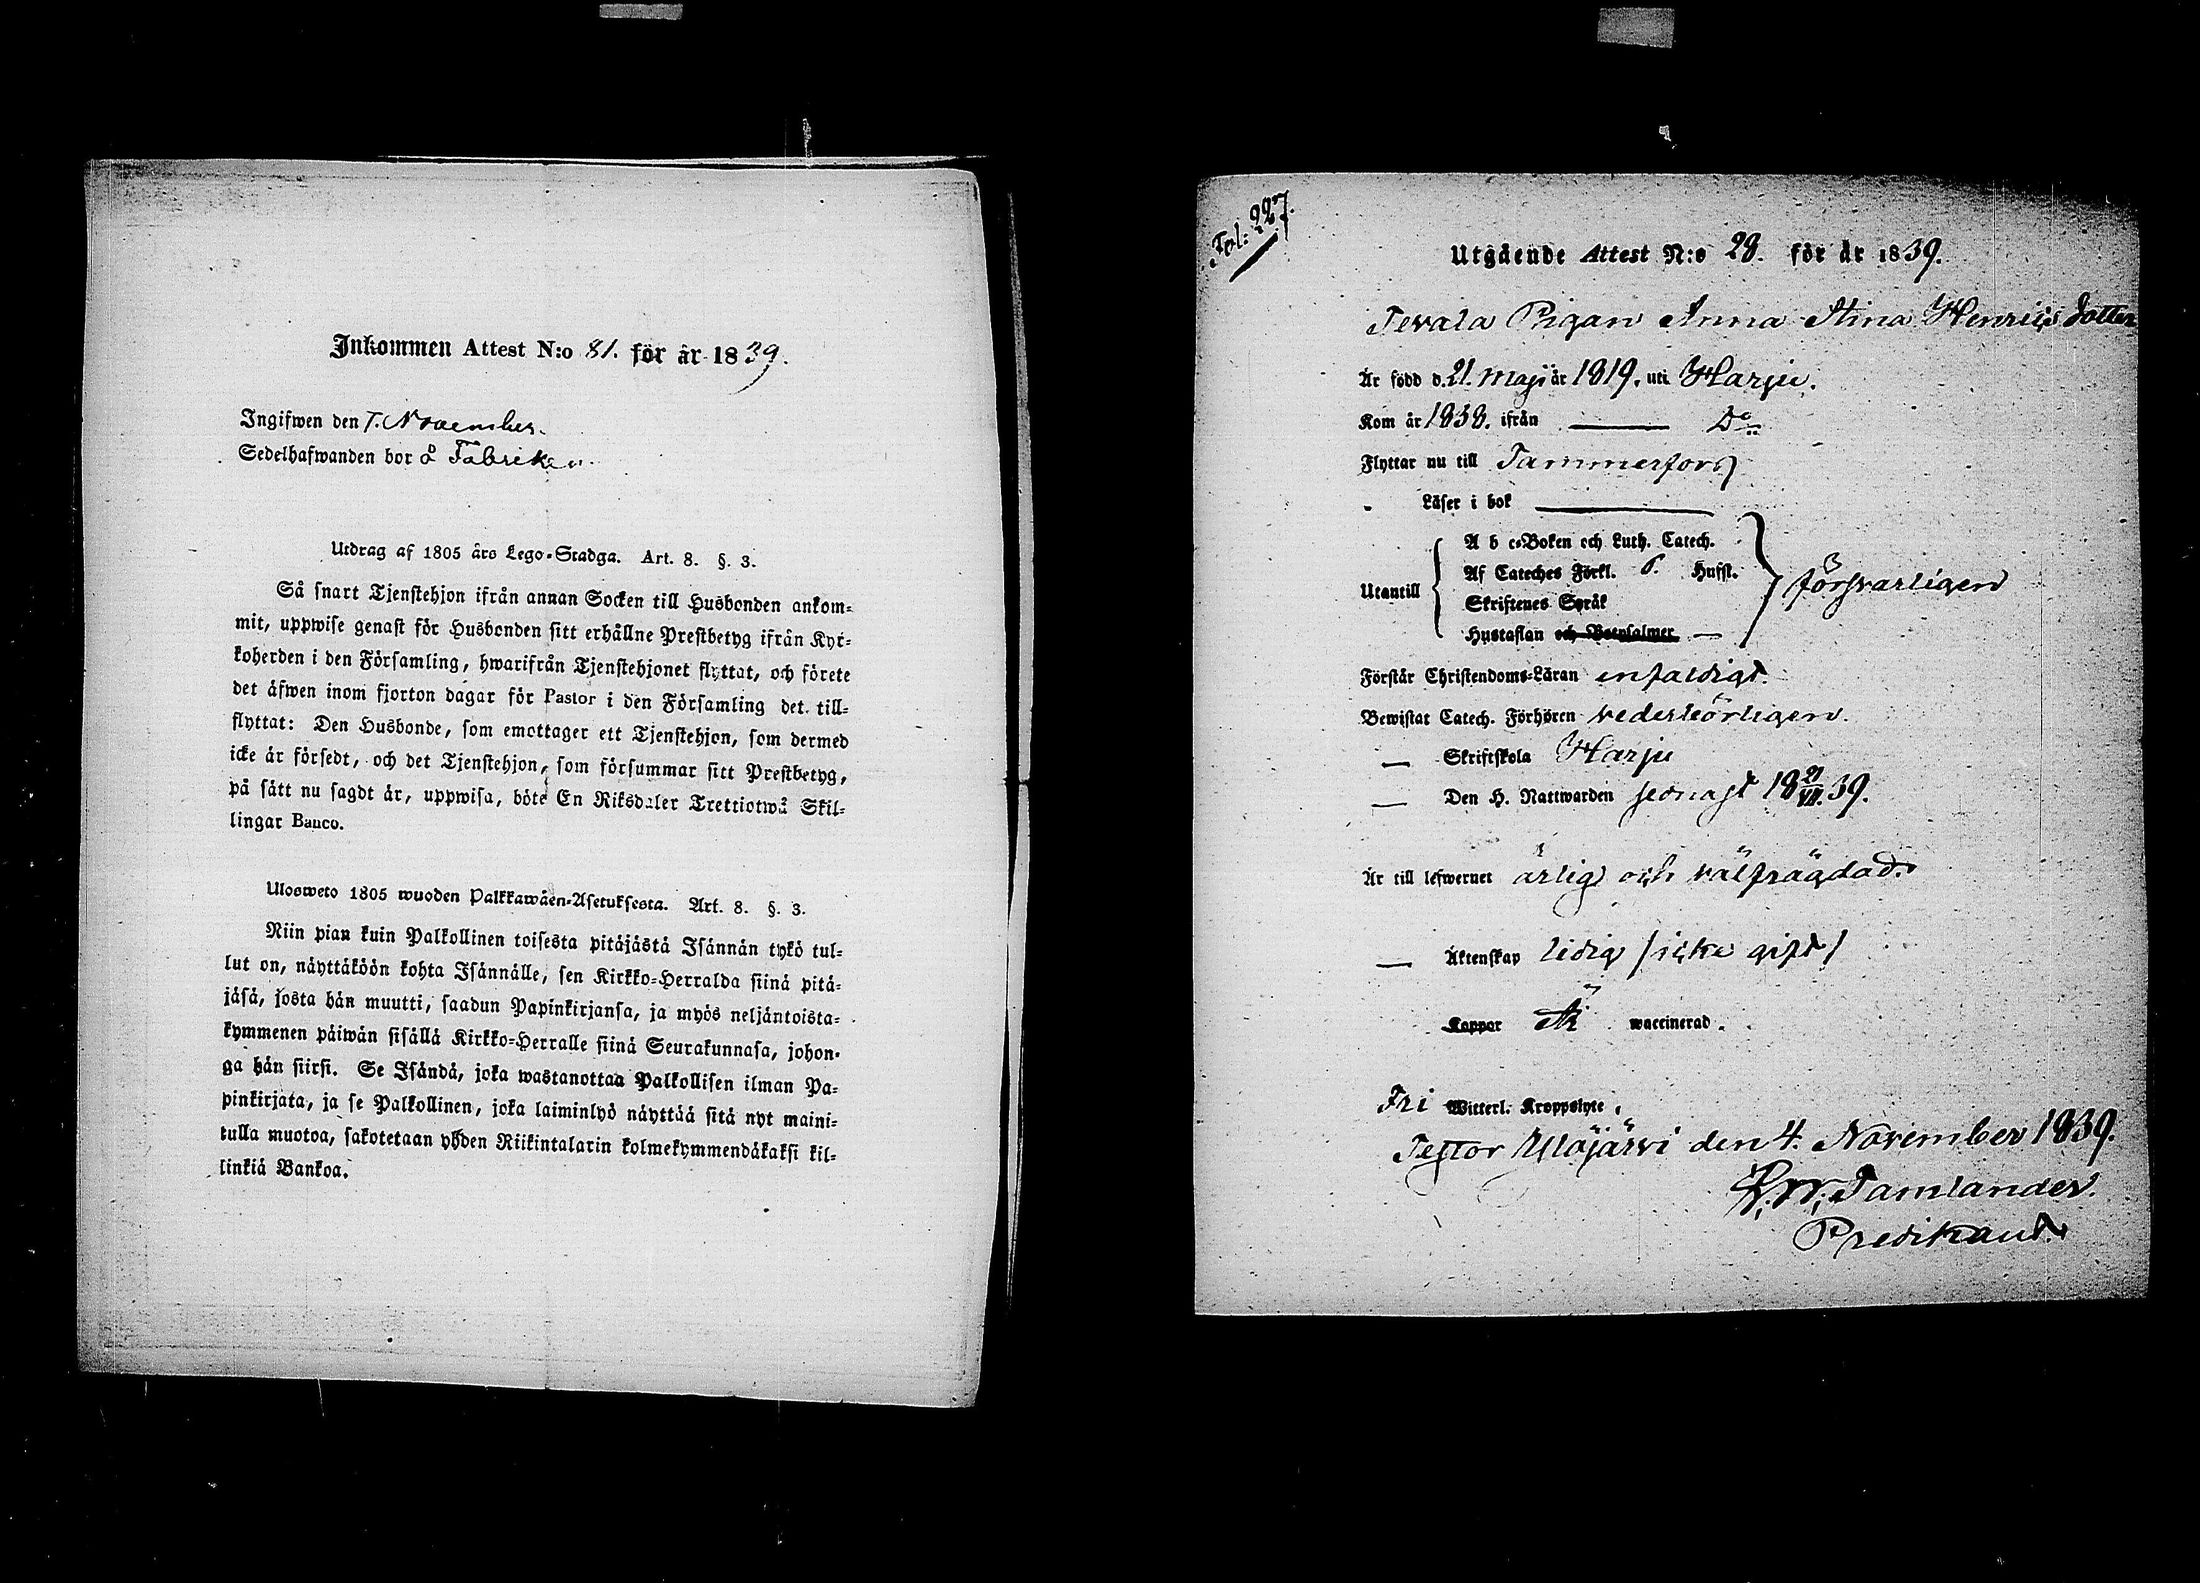 Inkommen Attest N:o 81. för år 1839.
Ingifwen den 7. November.
Sedelhafwanden bor å Fabriken
Utdrag af 1805 års Lego-Stadga. Art. 8. §. 3.
Så snart Tjenstehjon ifrån annan Socken till Husbonden ankom-
mit, uppwise genast för Husbonden sitt erhållne Prestbetyg ifrån Kyr-
koherden i den Församling, hwarifrån Tjenstehjonet flyttat, och förete
det äfwen inom fjorton dagar för Pastor i den Församling det till-
flyttat: Den Husbonde, som emottager ett Tjenstehjon, som dermed
icke är försedt, och det Tjenstehjon, som försummar sitt Prestbetyg,
på sätt nu sagdt är, uppwisa, böte En Riksdaler Trettiotwå Skil-
lingar Banco.
Ulosweto 1805 wuoden Palkkawäen-Asetuksesta. Art. 8. §. 3.
Niin pian kuin Palkollinen toisesta pitäjästä Isännän tykö tul-
lut on, näyttäköön kohta Isännälle, sen Kirkko-Herralda siinä pitä-
jäsä, josta hän muutti, saadun Papinkirjansa, ja myös neljäntoista-
kymmenen päiwän sisällä Kirkko-Herralle siinä Seurakunnasa, johon-
ga hän siirsi. Se Isändä, joka wastanottaa Palkollisen ilman Pa-
pinkirjata, ja se Palkollinen, joka laiminlyö näyttää sitä nyt maini-
tulla muotoa, sakotetaan yhden Riikintalarin kolmekymmendäkaksi kil-
linkiä Bankoa.
Fol: 227.
Utgående Attest N:o 28. för år 1839.
Tevala Pigan Anna Stina Henricsdotter
Är född d. 21. Maji år 1819. uti Harju.
Kom år 1838. ifrån — Do
Flyttar nu till Tammerfors
Läser i bok —
Utantill
A b c-Boken och Luth. Catech.
Af Cateches Förkl. 6. Hufst.
Skriftenes Språk
Hustaflan och Botpsalmer —
försvarligen
Förstår Christendoms-Läran enfaldigt.
Bewistat Catech. Förhören vederbörligen.
— Skriftskola Harju
— Den H. Nattwarden sednast 18 21/VII. 39.
Är till lefwernet ärlig och välfrägdad.
— Äktenskap ledig /icke gift/
Koppor Är waccinerad.
Fri Witterl. Kroppslyte.
Testor Ylöjärvi den 4. November 1839.
Tamlander.
Predikant.